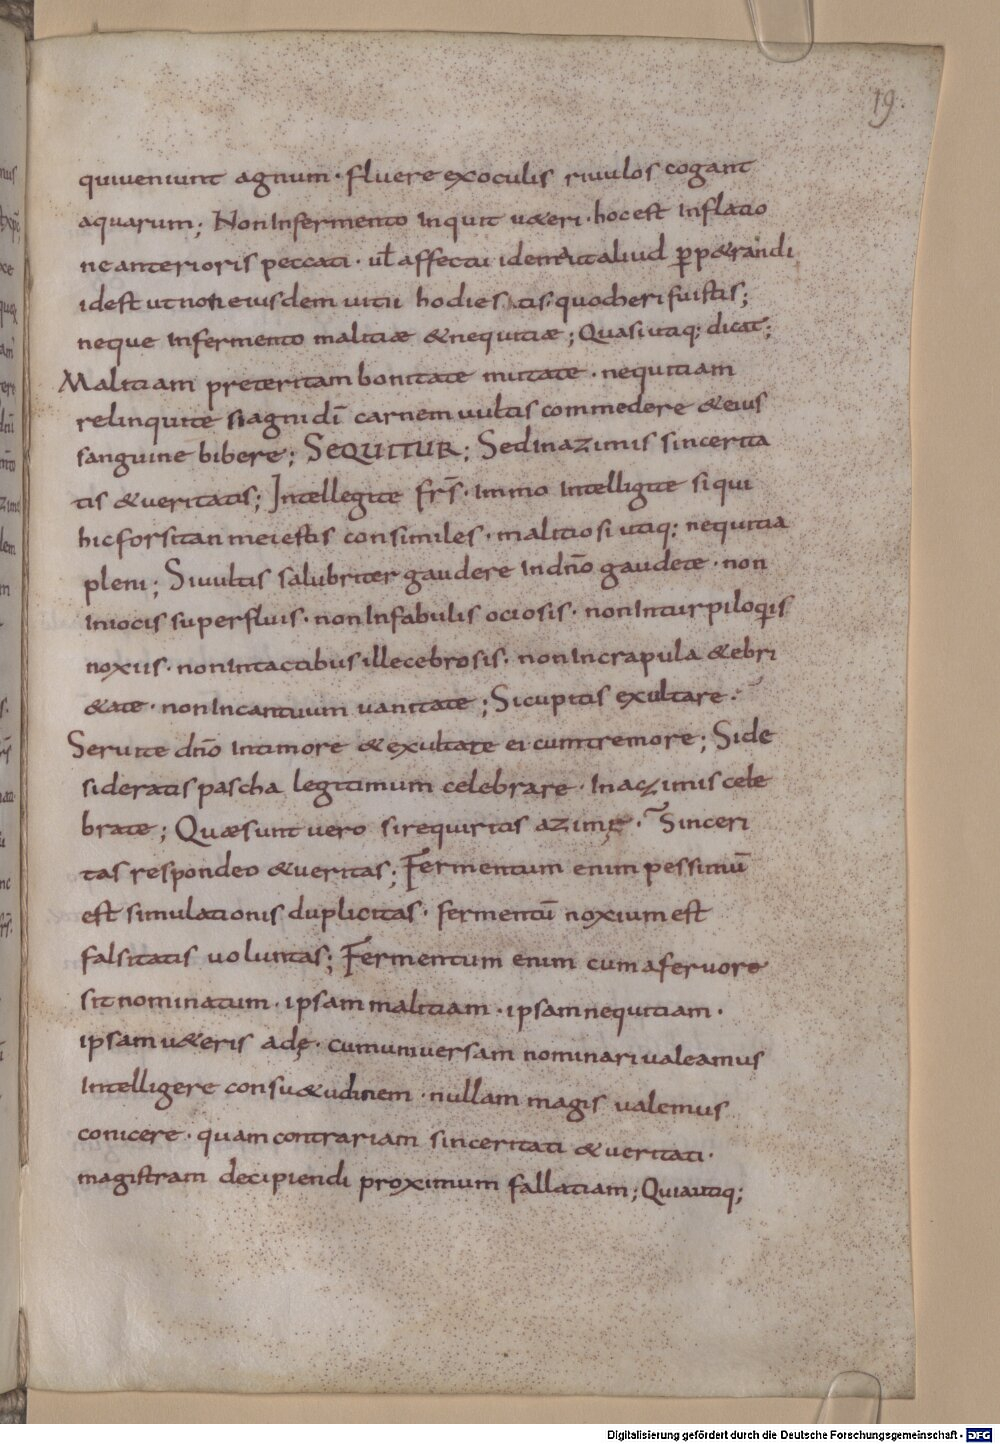 19
qui veniunt agnum · fluere ex oculis rivulos cogant
aquarum; Non In fermento Inquit ueteri · hoc est Inflatio
ne anterioris peccati · ul̄ affectu idem aut aliud ꝑpetrandi
id est ut non eiusdem uitii hodie sitis · quod heri fuistis;
neque In fermento malitiæ & nequitiæ; Quasi utiq; dicat;
Malitiam preteritam bonitate mutate · nequitiam
relinquite si agni dī carnem uultis commedere & eius
sanguine bibere; SEQUITUR; Sed in azimis sincerita
tis & ueritatis; Intellegite fr̄s · immo Intelligite si qui
hic forsitan mei estis consimiles · malitiosi utiq; nequitia
pleni; Si uultis salubriter gaudere In dn̄o gaudete · non
In iocis superfluis · non In fabulis ociosis · non In turpiloqiis
noxiis · non In tactibus illecebrosis · non In crapula & ebri
&ate · non In cantuum uanitate; Si cupitis exultare ·
Seruite dn̄o In timore & exultate ei cum tremore; Si de
sideratis pascha legitimum celebrare · In aczimis cele
brate; Quæ sunt uero si requiritis azimę · Sinceri
tas respondeo & ueritas; Fermentum enim pessimū
est simulationis duplicitas · fermentū noxium est
falsitatis uoluntas; Fermentum enim cum a feruore
sit nominatum · ipsam malitiam · ipsam nequitiam ·
ipsam u&eris adę · cum uniuersam nominari ualeamus
Intelligere consu&udinem · nullam magis ualemus
conicere · quam contrariam sinceritati & ueritati ·
magistram decipiendi proximum fallatiam; Quia utiq;
Digitalisierung gefördert durch die Deutsche Forschungsgemeinschaft - DFG